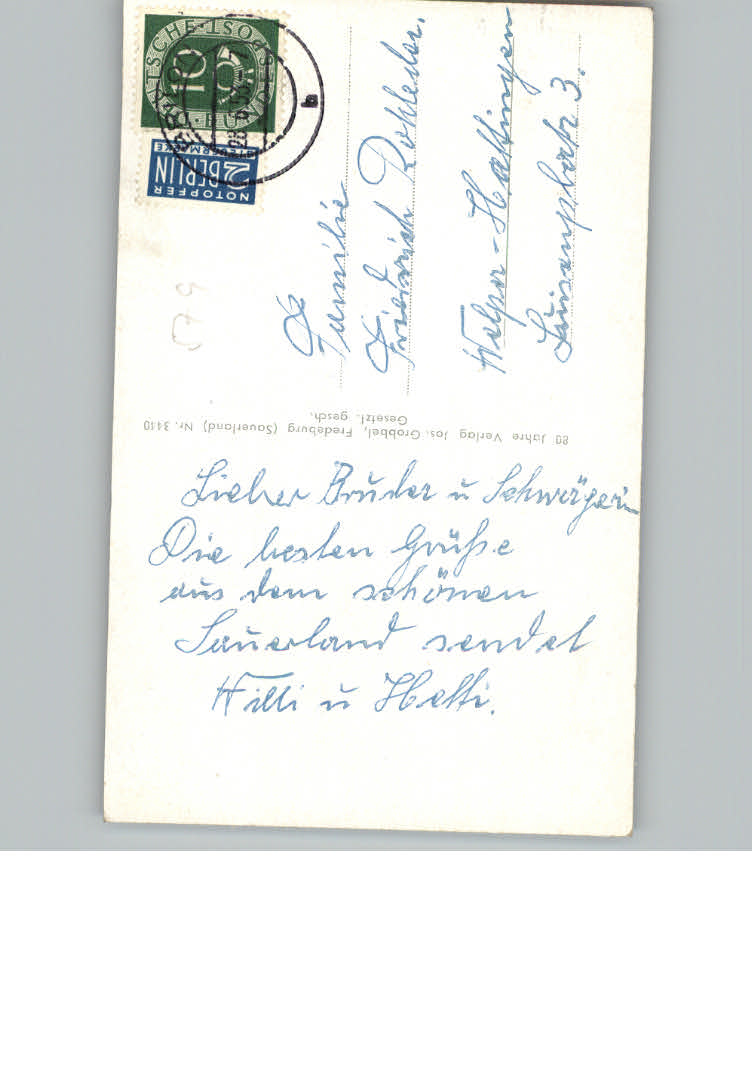 Lieber Bruder u Schwägerin
Die besten Grüße
aus dem schönen
Sauerland sendet
Willi u Hetti.
80 Jahre Verlag Jos. Grobbel, Fredeburg (Sauerland) Nr. 3410
Gesetzl. geschl.
Familie
Friedrich Rohleder.
Welper-Hattingen
Luisenplatz 3.
10
NOTOPFER
2 BERLIN
STEUERMARKE
b